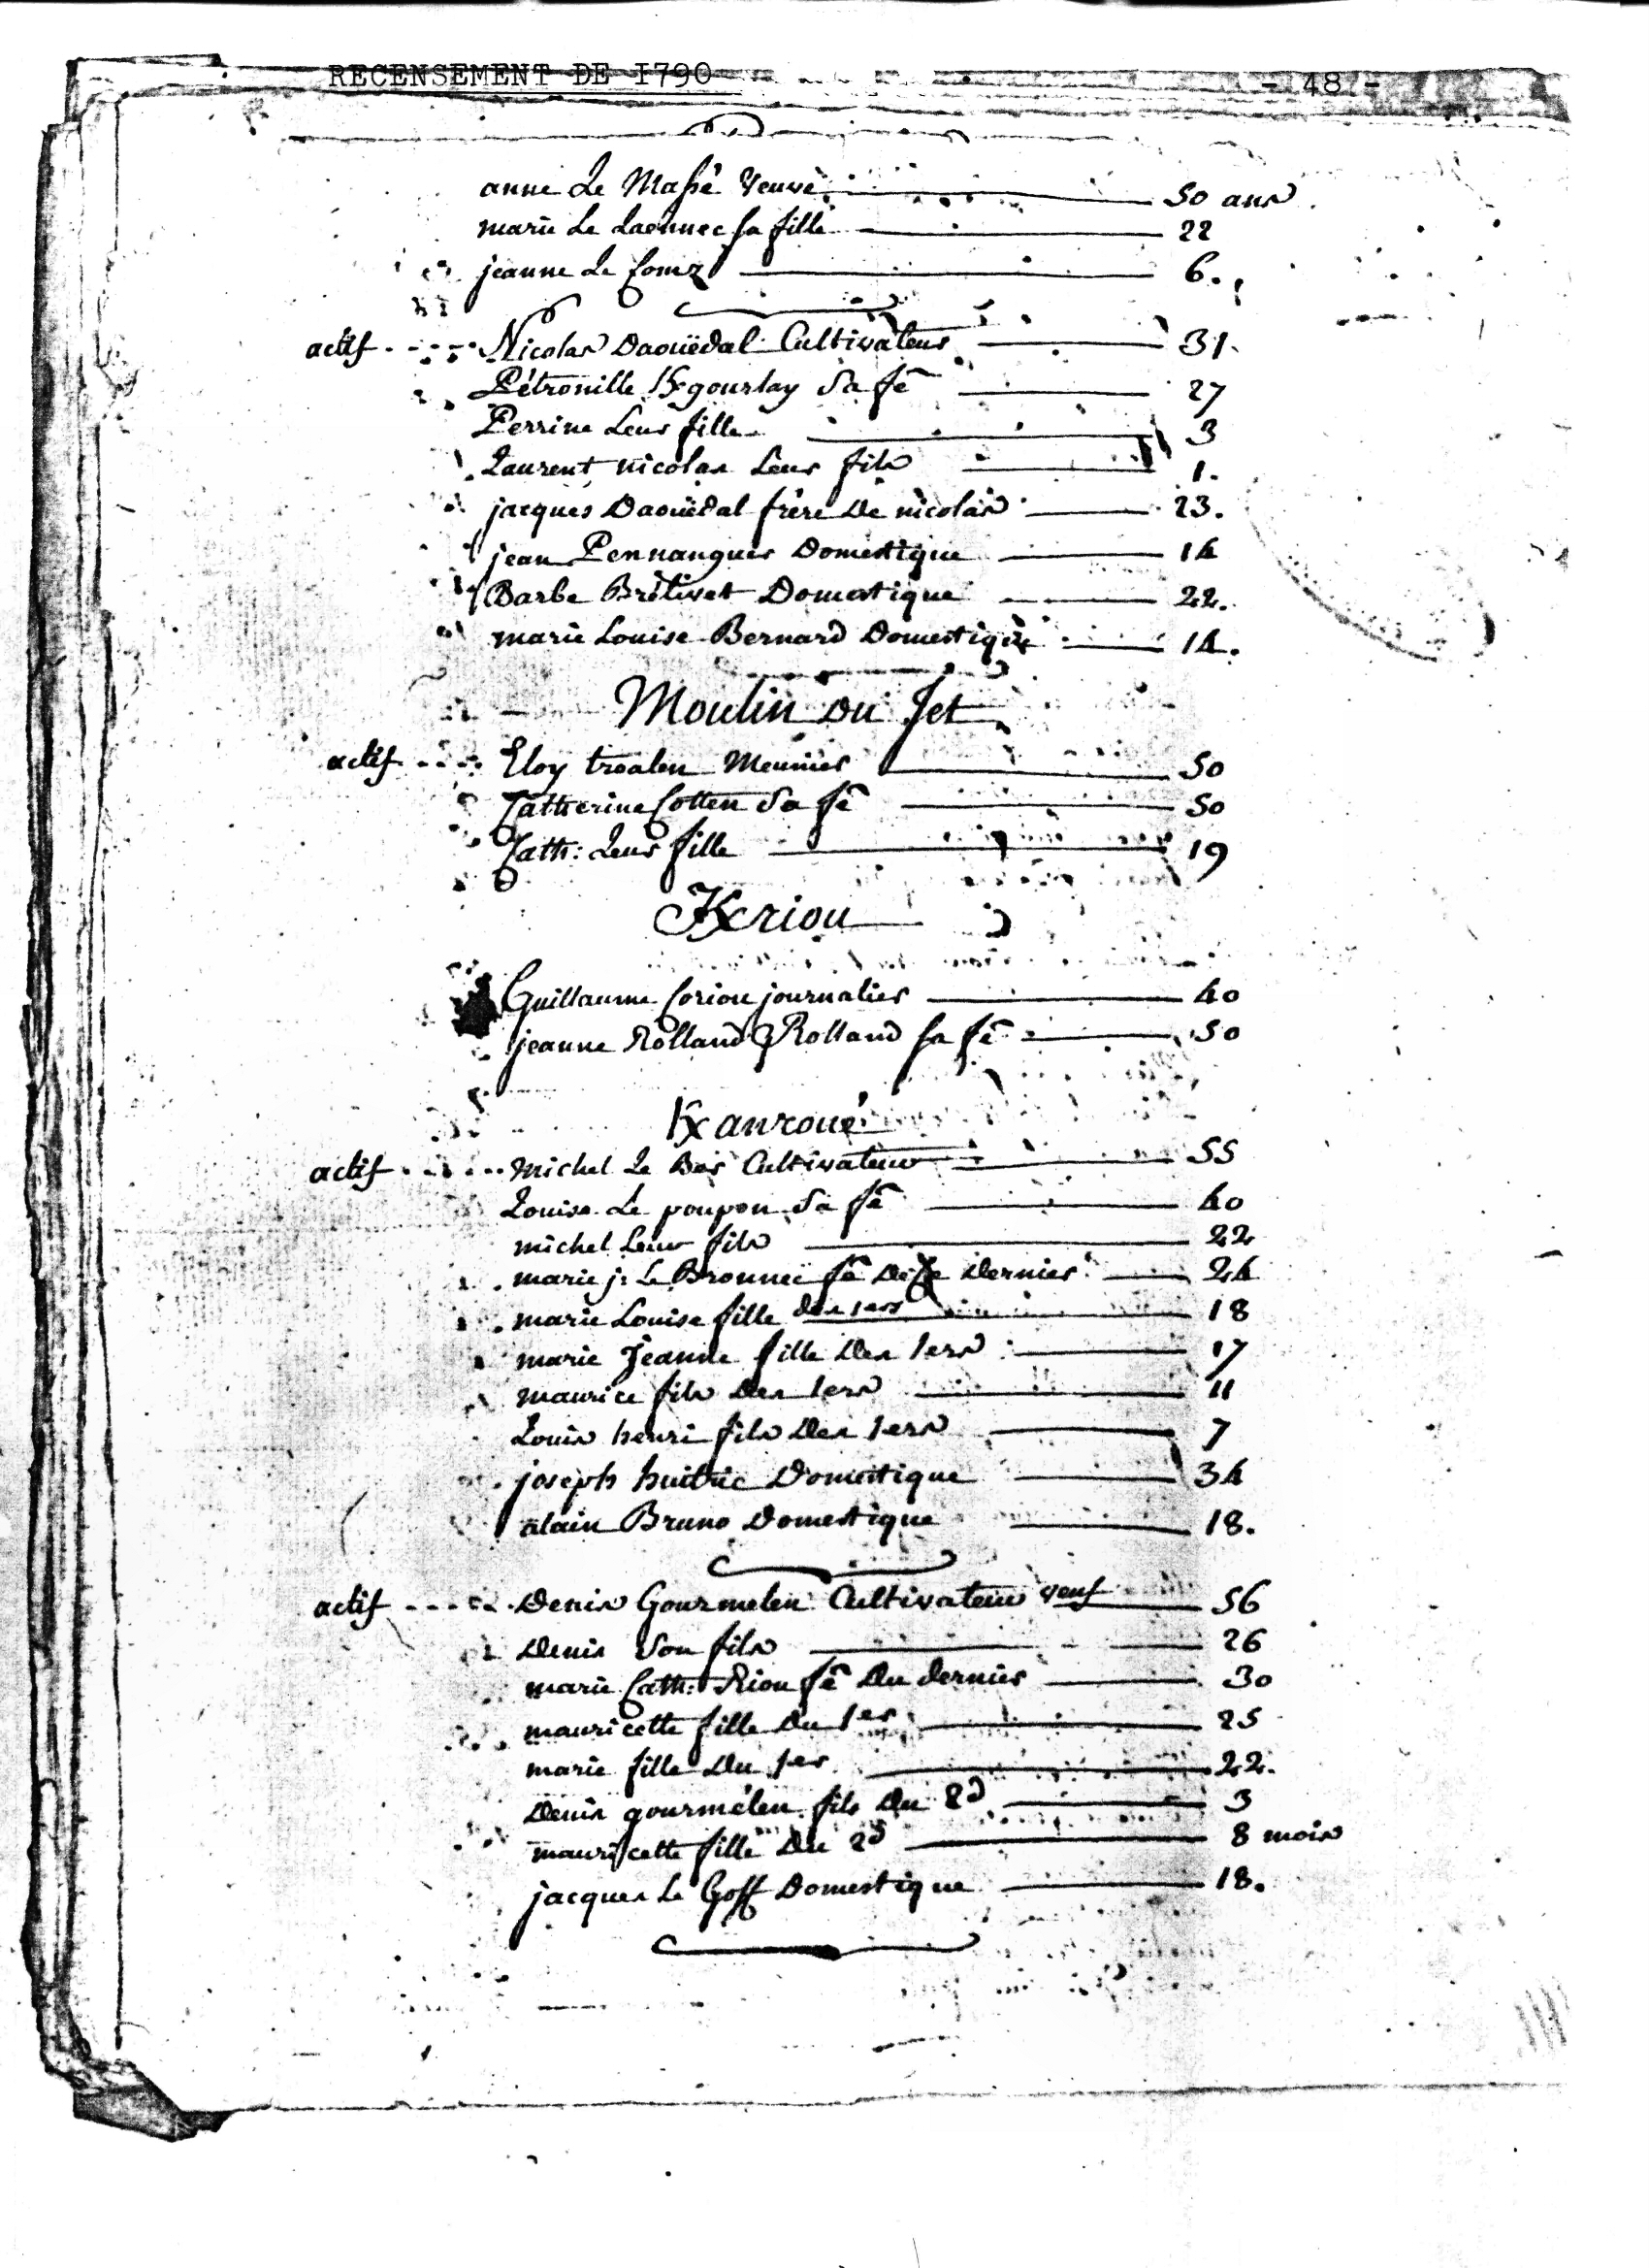 RECENSEMENT DE I790 - 48 -
anne Le Massé Veuve 50 ans
marie Le Laennec sa fille 22
jeanne Le Comz 6.
actif Nicolas Daouëdal Cultivateur 31.
Pétronille Kgourlay Sa fe 27
Perrine Leur fille 3
Laurent nicolas Leur fils 1.
jacques Daouëdal frère De nicolas 23.
jean Pennanguer Domestique 14
Barbe Brélivet Domestique 22.
marie Louise Bernard Domestique 14.
Moulin Du Jet
actif Eloy troalen Meunier 50
Catherine Cotten Sa fe 50
Cath: Leur fille 19
Keriou
Guillaume Coriou journalier 40
jeanne Rolland Rolland sa fe 50
Kanroué
actif michel Le Ber Cultivateur 55
Louise Le poupon Sa fe 40
michel Leur fils 22
marie j. Le Bronnec fe De Ce Dernier 24
marie Louise fille des 1ers 18
marie Jeanne fille Des 1ers 17
maurice fils Des 1ers 11
Louis henri fils Des 1ers 7
joseph huitric Domestique 34
alain Bruno Domestique 18.
actif Denis Gourmelen Cultivateur veuf 56
Denis Son fils 26
marie Cath: Riou fe Du dernier 30
mauricette fille Du 1er 25
marie fille Du 1er 22.
Denis gourmélen fils Du 2d 3
mauricette fille Du 2d 8 mois
jacques Le Goff Domestique 18.